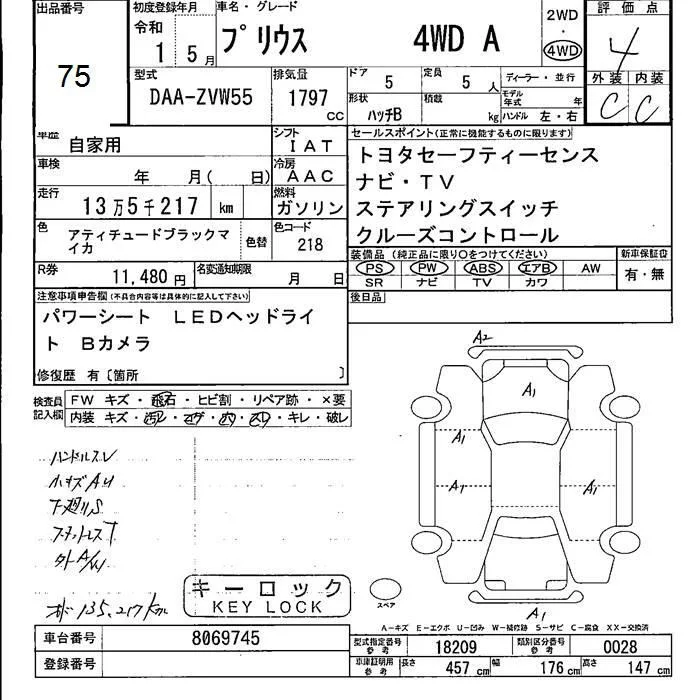 出品番号
75
初度登録年月
令和
1 5月
車名・グレード
プリウス 4WD A
2WD
・
4WD
評価点
4
外装 内装
C C
型式
DAA-ZVW55
排気量
1797
CC
ドア 5
定員 5 人
ディーラー・並行
形状 ハッチB
積載 kg
モデル年式 年
ハンドル 左・右
車歴 自家用
シフト IAT
車検 年 月( 日)
冷房 AAC
走行 13万5千217 km
燃料 ガソリン
色 アティチュードブラックマイカ
色替
色コード 218
R券 11,480円
名変通知期限 月 日
セールスポイント(正常に機能するものに限ります)
トヨタセーフティーセンス
ナビ・TV
ステアリングスイッチ
クルーズコントロール
装備品(純正品に限り○をつけてください)
新車保証書
PS PW ABS エアB AW
SR ナビ TV カワ
有・無
後日品
注意事項申告欄(不具合内容等は具体的に記入して下さい)
パワーシート LEDヘッドライ
ト Bカメラ
修復歴 有〔箇所 〕
検査員記入欄
FW キズ・飛石・ヒビ割・リペア跡・×要
内装 キズ・汚レ・コゲ・穴・スレ・キレ・破レ
ハンドルスレ
小キズAU
下廻りS
135,217km
キーロック
KEY LOCK
A2
A1
A1
A1
A1
A1
スペア
A-キズ E-エクボ U-凹み W-補修跡 S-サビ C-腐食 XX-交換済
車台番号 8069745
登録番号
型式指定番号参考 18209
類別区分番号参考 0028
車庫証明用参考 長さ 457 cm 幅 176 cm 高さ 147 cm